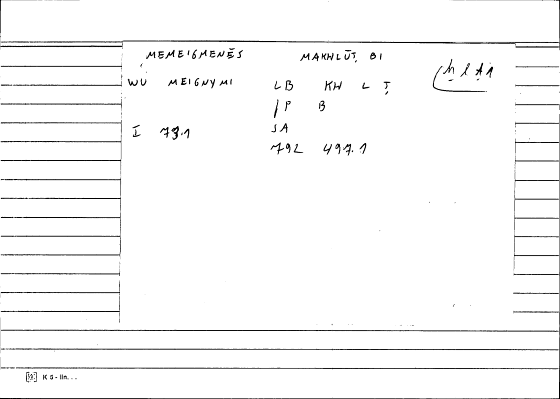 MEMEIGMENĒS MAKHLŪṬ BI
WU MEIGNYMI LB KH L Ṭ
/P B
I 73.1 SA
792 497.1
K6-lin...